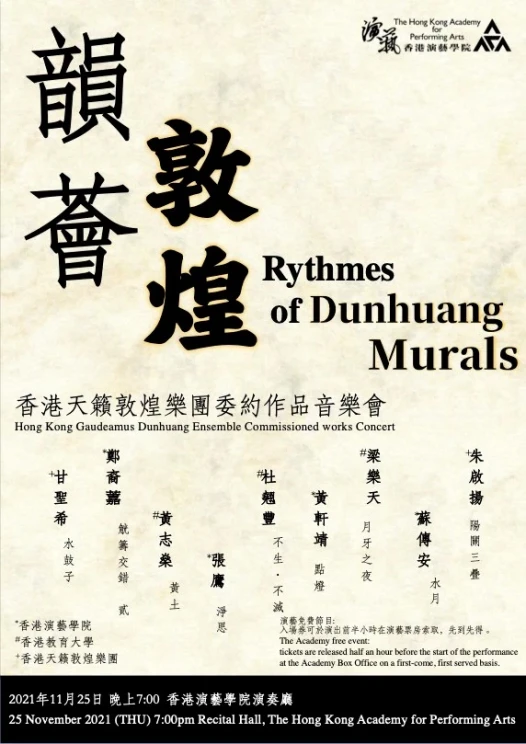 演藝
The Hong Kong Academy
for
Performing Arts
香港演藝學院
APA
韻薈
敦煌
Rythmes
of Dunhuang
Murals
香港天籟敦煌樂團委約作品音樂會
Hong Kong Gaudeamus Dunhuang Ensemble Commissioned works Concert
+朱啟揚 陽關三叠
*蘇傳安 水月
#梁樂天 月牙之夜
*黃軒靖 點燈
#杜翹豐 不生・不滅
*張鷹 淨恩
#黃志燊 黃土
*鄭裔嘉 觥籌交錯 貳
+甘聖希 水鼓子
*香港演藝學院
#香港教育大學
+香港天籟敦煌樂團
演藝免費節目:
入場券可於演出前半小時在演藝票房索取,先到先得。
The Academy free event:
tickets are released half an hour before the start of the performance
at the Academy Box Office on a first-come, first served basis.
2021年11月25日 晚上7:00 香港演藝學院演奏廳
25 November 2021 (THU) 7:00pm Recital Hall, The Hong Kong Academy for Performing Arts